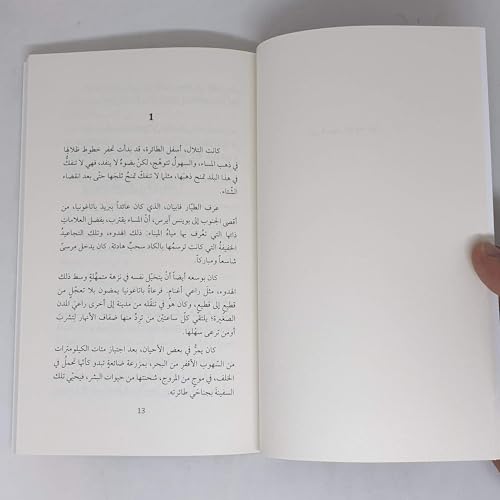 1
كانت التلال، أسفل الطائرة، قد بدأت تحفر خطوط ظلالها
في ذهب المساء، والسهولُ تتوهّج، لكنْ بضوءٍ لا ينفد، فهي لا تنفكُّ
في هذا البلد تمنح ذهبَها، مثلما لا تنفكّ تمنحُ ثلجَها حتّى بعد انقضاء
الشتاء.
عرف الطيّار فابيان، الذي كان عائداً ببريد باتاغونيا، من
أقصى الجنوب إلى بوينس آيرس، أنّ المساء يقترب، بفضل العلامات
ذاتها التي تعرَّف بها مياهُ الميناء: ذلك الهدوء، وتلك التجاعيدُ
الخفيفةُ التي كانت ترسمُها بالكاد سحبٌ هادئة. كان يدخل مرسىً
شاسعاً ومباركاً.
كان بوسعه أيضاً أنْ يتخيّل نفسه في نزهة متمهّلةٍ وسط ذلك
الهدوء، مثلَ راعي أغنام. فرعاةُ باتاغونيا يمضون بلا تعجّلٍ من
قطيعٍ إلى قطيع، وكان هو في تنقّله من مدينة إلى أخرى راعيَ المدن
الصغيرة؛ يلتقي كلَّ ساعتين من تردُ منها ضفافَ الأنهار لتشربَ
أو من ترعى سهْلَها.
كان يمرُّ في بعض الأحيان، بعد اجتياز مئات الكيلومترات
من السّهوب الأقفر من البحر، بمزرعة ضائعةٍ تبدو كأنّها تحملُ في
الخلف، في موج من المروج، شحنتَها من حيوات البشر، فيحيّي تلك
السفينةَ بجناحَيْ طائرته.
13